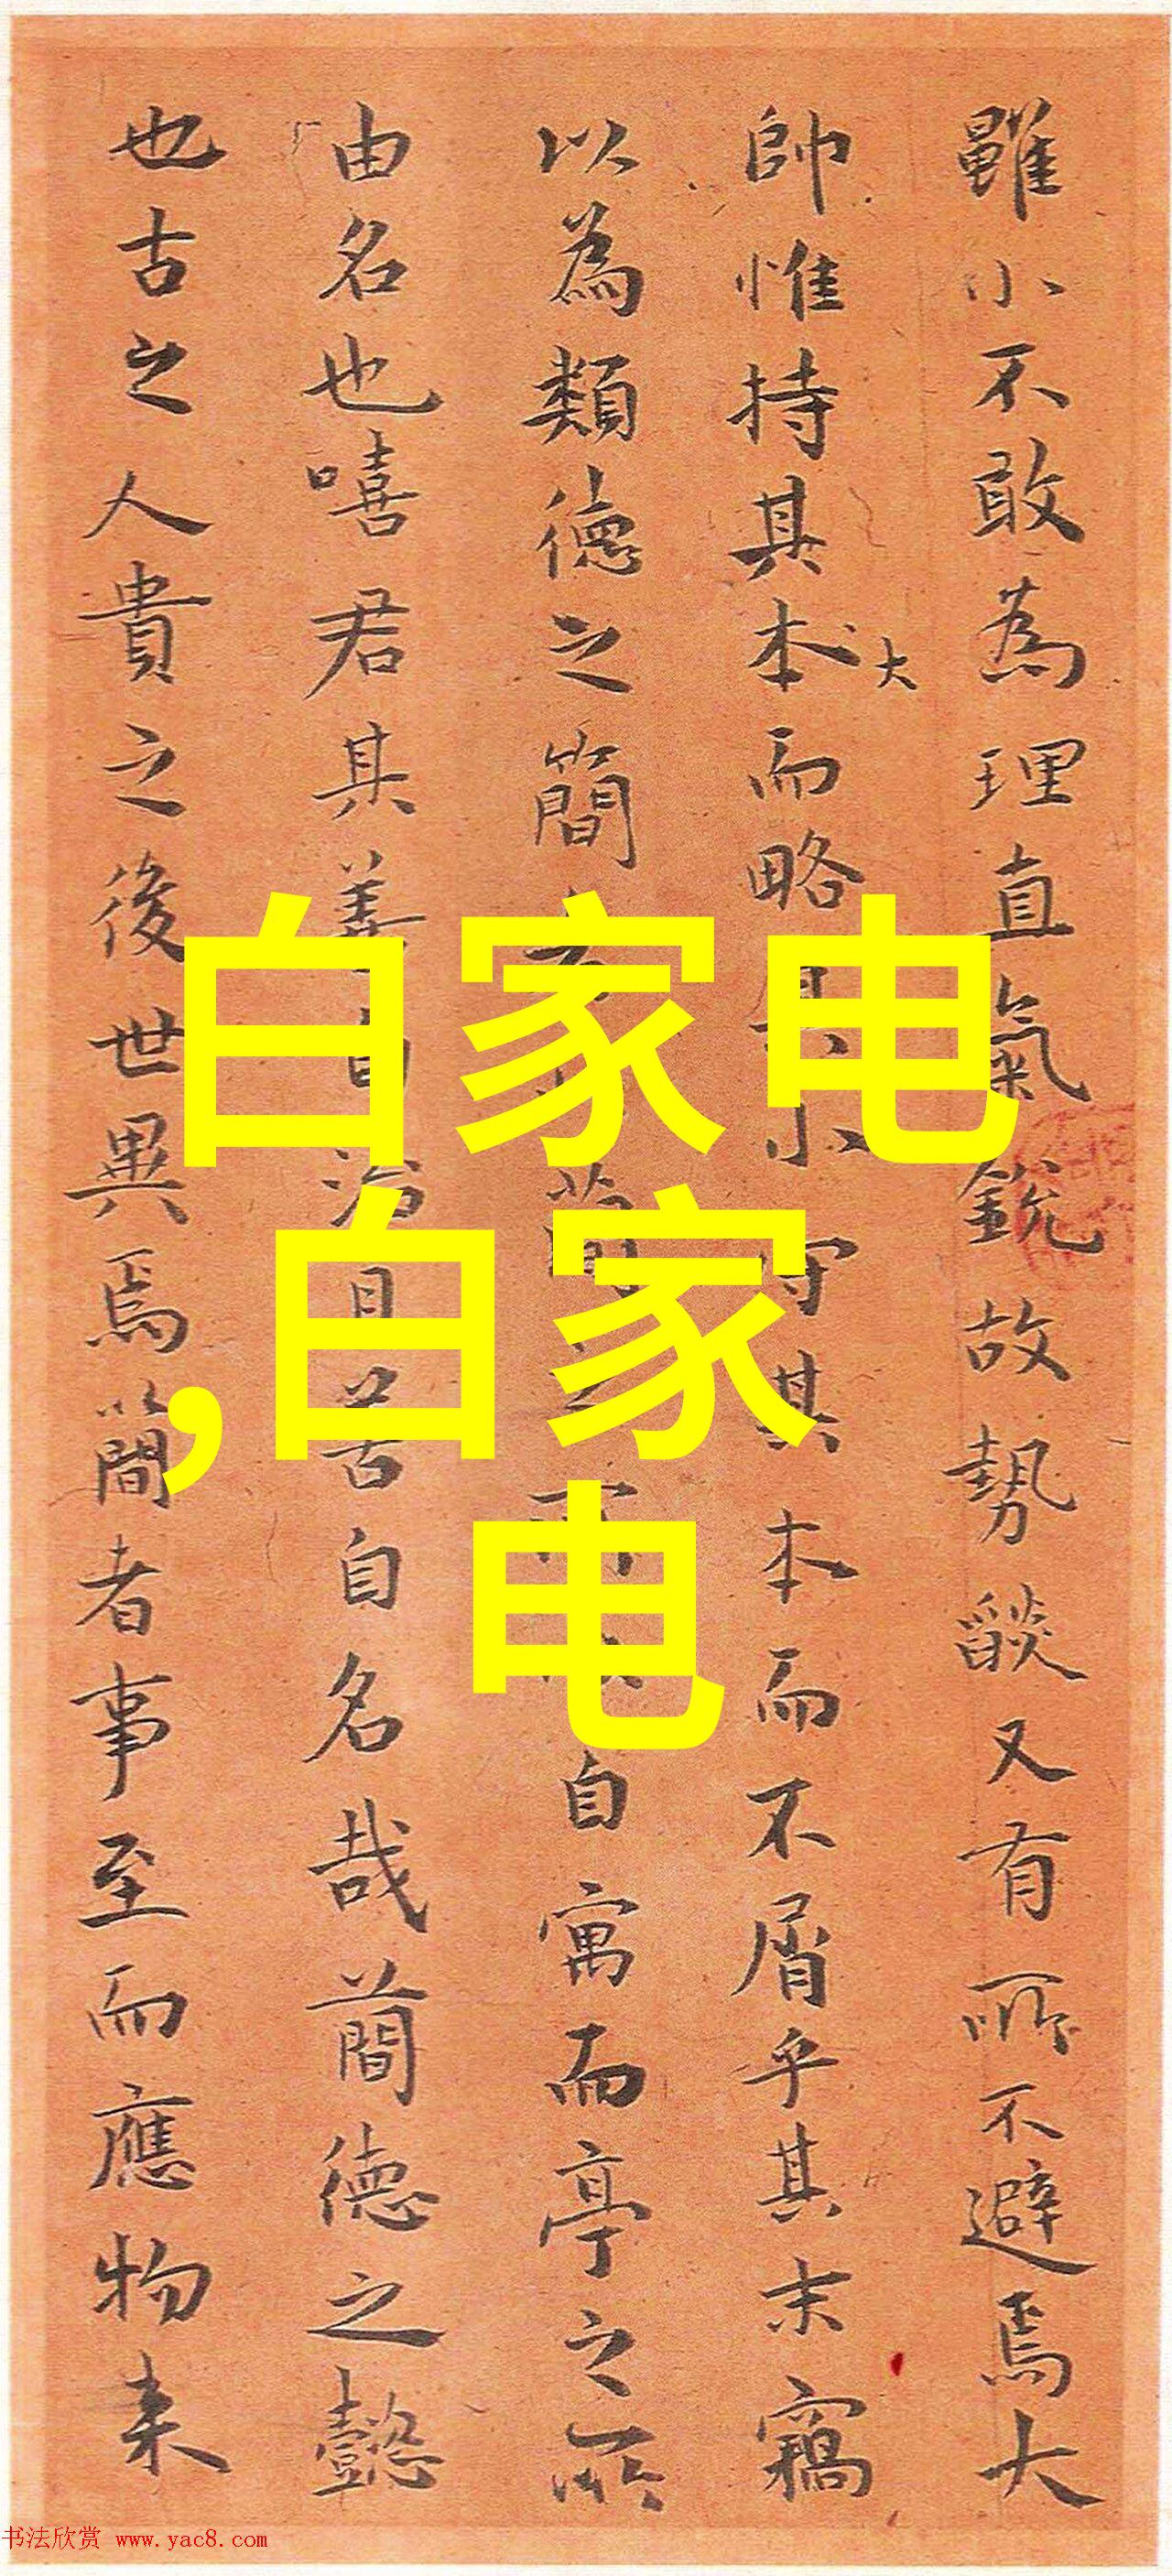 雖小不敢為理直氣銳故勢燄又有所不避焉大
帥惟持其本大而略其小守其本而不屑乎其末竊
以為類德之簡
自寓而亭之所
由名也嘻君其善自
自名哉蕳德之懿
也古之人貴之後世異焉簡者事至而應物来
白家电
,白家
电
书法欣赏 www.yac8.com